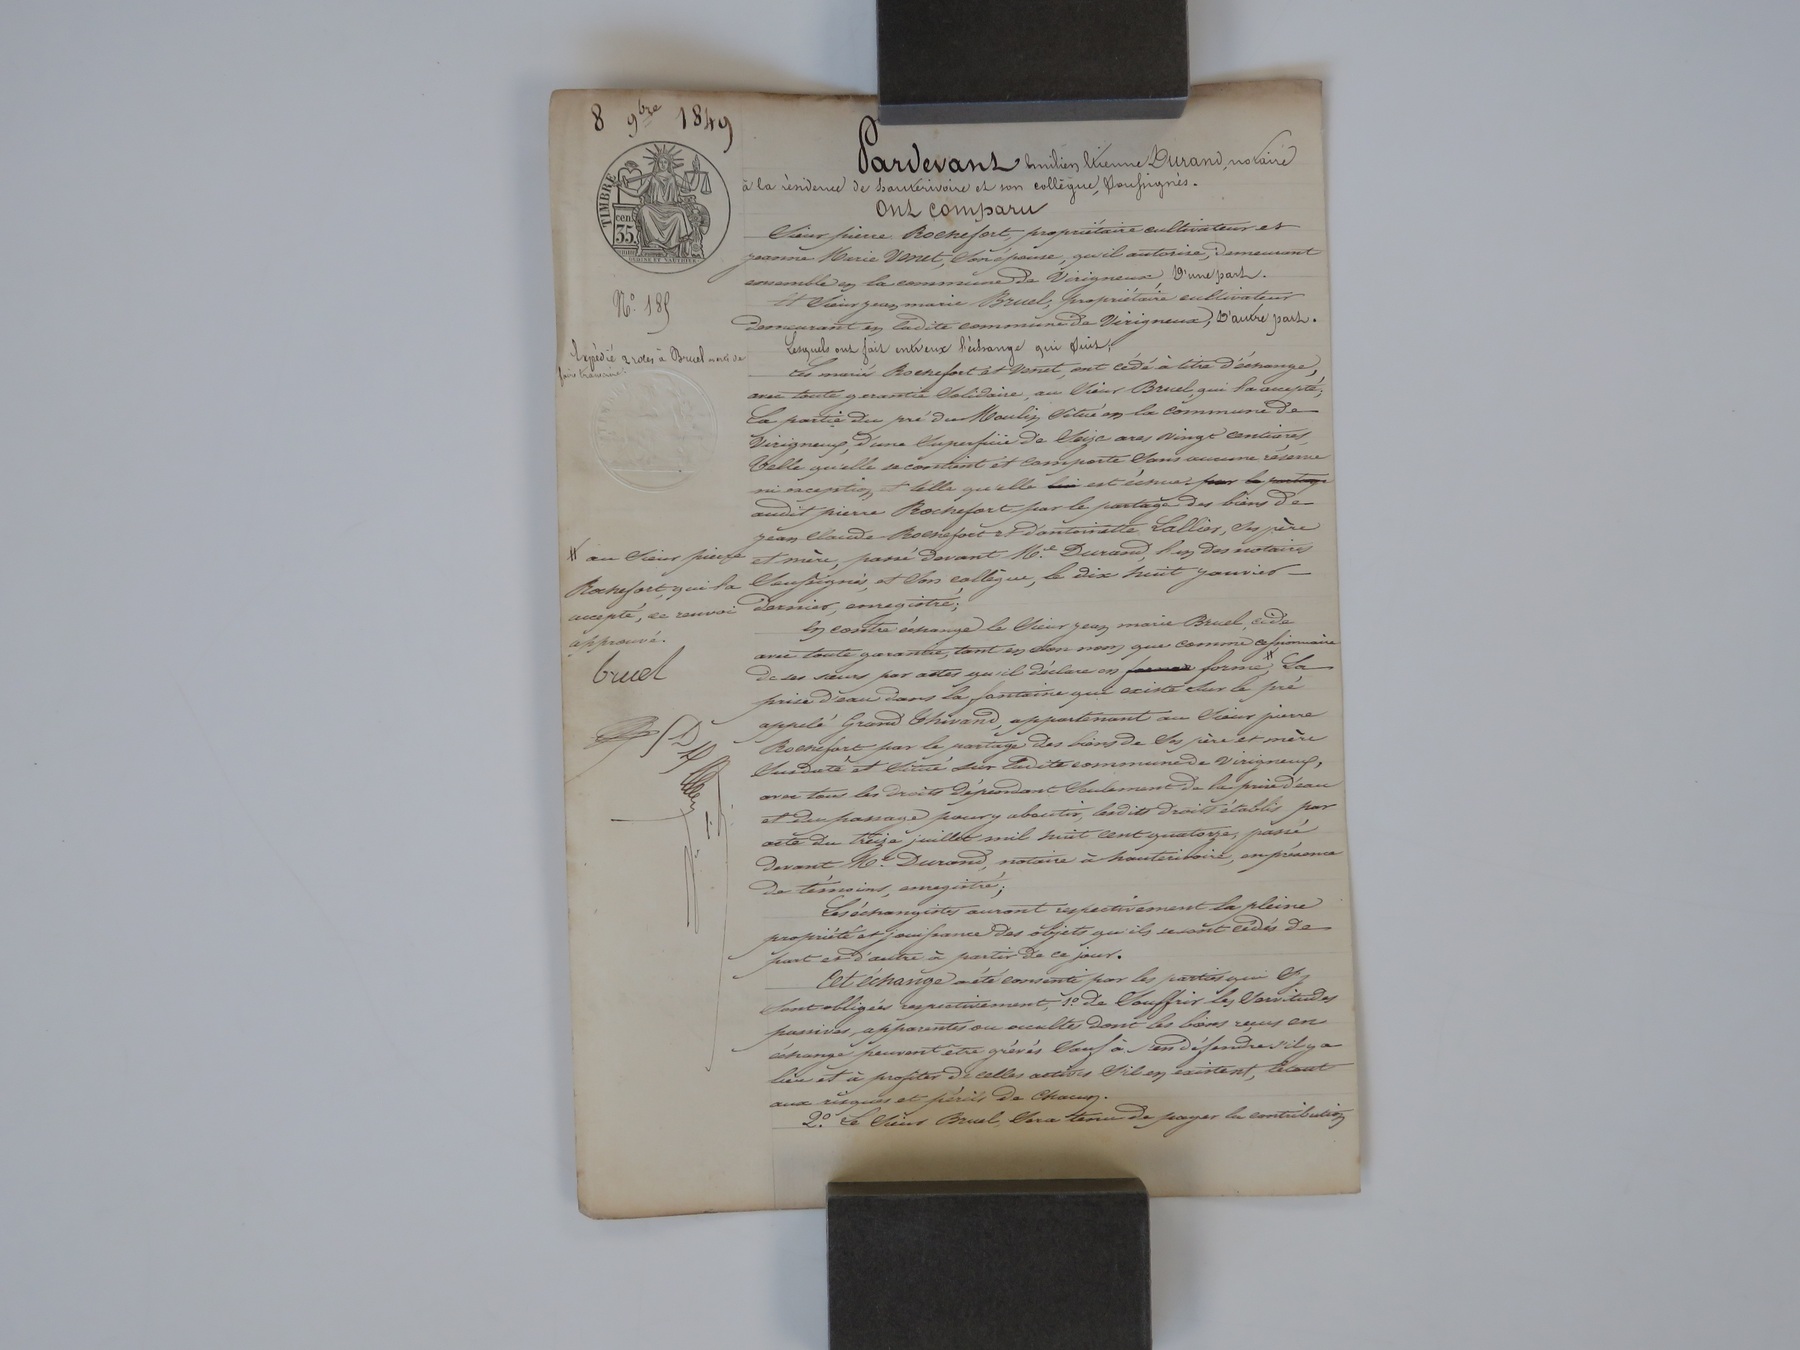 8 9bre 1849
TIMBRE
cen.
35
No. 185
Expédié 2 roles à Bruel
Pardevant Emilien Etienne Durand, notaire
à la résidence de hauterivoire et son collègue, Soussignés.
Ont comparu
Sieur pierre Rochefort, propriétaire cultivateur et
jeanne Marie Venet, Son épouse, qu'il autorise, demeurant
ensemble en la commune de Virigneux, D'une part.
Et Sieur jean marie Bruel, propriétaire cultivateur
demeurant en ladite commune de Virigneux, D'autre part.
Lesquels ont fait entr'eux l'échange qui Suit;
Les mariés Rochefort et Venet, ont cédé à titre d'échange,
avec toute garantie Solidaire, au Sieur Bruel, qui l'a accepté,
La partie du pré du Moulin Situé en la commune de
Virigneux, d'une Superficie de Seize ares vingt centiares,
Telle qu'elle se contient et comporte Sans aucune réserve
ni exception et telle qu'elle lui est échue, par le partage
audit pierre Rochefort par le partage des biens de
jean Claude Rochefort et d'antoinette Lallier, Ses père
et mère, passé devant Me. Durand l'un des notaires
Soussignés, et Son collègue, le dix huit janvier
dernier, enregistré;
En contre échange le Sieur jean marie Bruel, cède
avec toute garantie, tant en Son nom que comme cessionnaire
de ses sœurs par actes qu'il déclare en forme, # La
prise d'eau dans la fontaine qui existe Sur le pré
appelé Grand Thivand, appartenant au Sieur pierre
Rochefort par le partage des biens de Ses père et mère
Susdaté et Situé Sur ladite commune de Virigneux,
avec tous les droits dépendant Seulement de la prise d'eau
et du passage pour y aboutir, lesdits droits établis par
acte du treize juillet mil huit cent quatorze, passé
devant Me. Durand, notaire à hauterivoire, en présence
de témoins, enregistré;
Les échangistes auront respectivement la pleine
propriété et jouissance des objets qu'ils se sont cédés de
part et d'autre à partir de ce jour.
Cet échange a été consenti par les parties qui Se
Sont obligées respectivement, 1o. de Souffrir les Servitudes
passives, apparentes ou occultes dont les biens reçus en
échange peuvent être grévés Sauf à S'en défendre s'il y a
lieu et à profiter de celles actives S'il en existent, le tout
aux risques et périls de Chacun.
2o. Le Sieur Bruel, Sera tenu de payer la contribution
# au Sieur pierre
Rochefort, qui l'a
accepté, ce renvoi
approuvé.
bruel